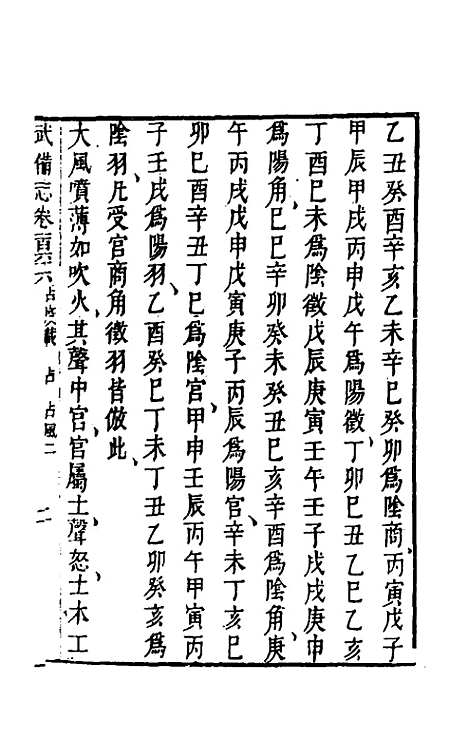 乙丑癸酉辛亥乙未辛巳癸卯爲陰商丙寅戊子
甲辰甲戌丙申戊午爲陽徵丁卯巳丑乙巳乙亥
丁酉巳未爲陰徵戊辰庚寅壬午壬子戌戌庚申
爲陽角巳巳辛卯癸未癸丑巳亥辛酉爲陰角庚
午丙戌戊申戊寅庚子丙辰爲陽官辛未丁亥巳
卯巳酉辛丑丁巳爲陰官甲申壬辰丙午甲寅丙
子壬戌爲陽羽乙酉癸巳丁未丁丑乙卯癸亥爲
陰羽凡受官商角徵羽皆倣此
大風噴薄如吹火其聲中官官屬土聲怒土木工
武備志卷百六六 占度載 占 占風二 二